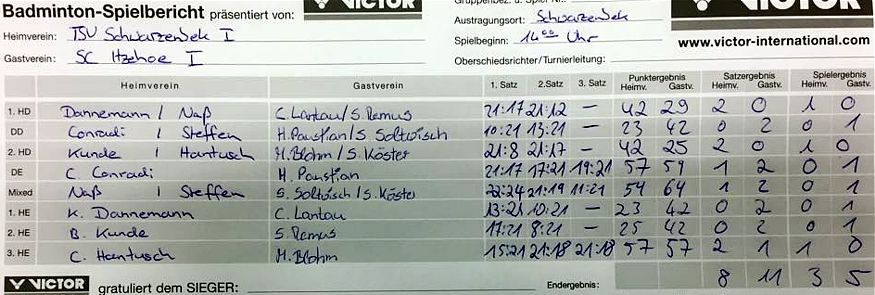 Badminton-Spielbericht präsentiert von: VICTOR
Austragungsort: Schwarzenbek
Heimverein: TSV Schwarzenbek I
Spielbeginn: 14⁰⁰ Uhr
www.victor-international.com
Gastverein: SC Itzehoe I
Oberschiedsrichter/Turnierleitung:
Heimverein Gastverein 1. Satz 2. Satz 3. Satz Punktergebnis Heimv. Gastv. Satzergebnis Heimv. Gastv. Spielergebnis Heimv. Gastv.
1. HD Dannemann / Naß C. Lantau/S. Remus 21:17 21:12 – 42 29 2 0 1 0
DD Conradi / Steffen H. Paustian/S. Soltwisch 10:21 13:21 – 23 42 0 2 0 1
2. HD Kunde / Hantusch M. Blohm/S. Köster 21:8 21:17 – 42 25 2 0 1 0
DE C. Conradi H. Paustian 21:17 17:21 19:21 57 59 1 2 0 1
Mixed Naß / Steffen S. Soltwisch/S. Köster 22:24 21:19 11:21 54 64 1 2 0 1
1. HE K. Dannemann C. Lantau 13:21 10:21 – 23 42 0 2 0 1
2. HE B. Kunde S. Remus 17:21 8:21 – 25 42 0 2 0 1
3. HE C. Hantusch M. Blohm 15:21 21:18 21:18 57 57 2 1 1 0
VICTOR gratuliert dem SIEGER: Endergebnis: 8 11 3 5